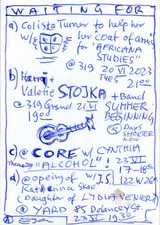 WAITING FOR
a) Colista Turner to help her
w/ her coat of arms
for "AFRICANA
STUDIES"
@ 319 20 VI 2023
TUES 21 00
b) Harri +
Valerie STOJKA + Band
@ 319 Grand 21 VI SUMMER
19 00 BEGINNING
DAYS
SHORTER
NOW
c) @ CORE w/ CYNTHIA
"ALCOHOL"! 23 VI
17-18
d) @ opening of W.J.S. 122 W 26
Katherina
(Daughter of LYDIA VENIERI)
@ YARD 85 Delancey St
23 VI 19 30